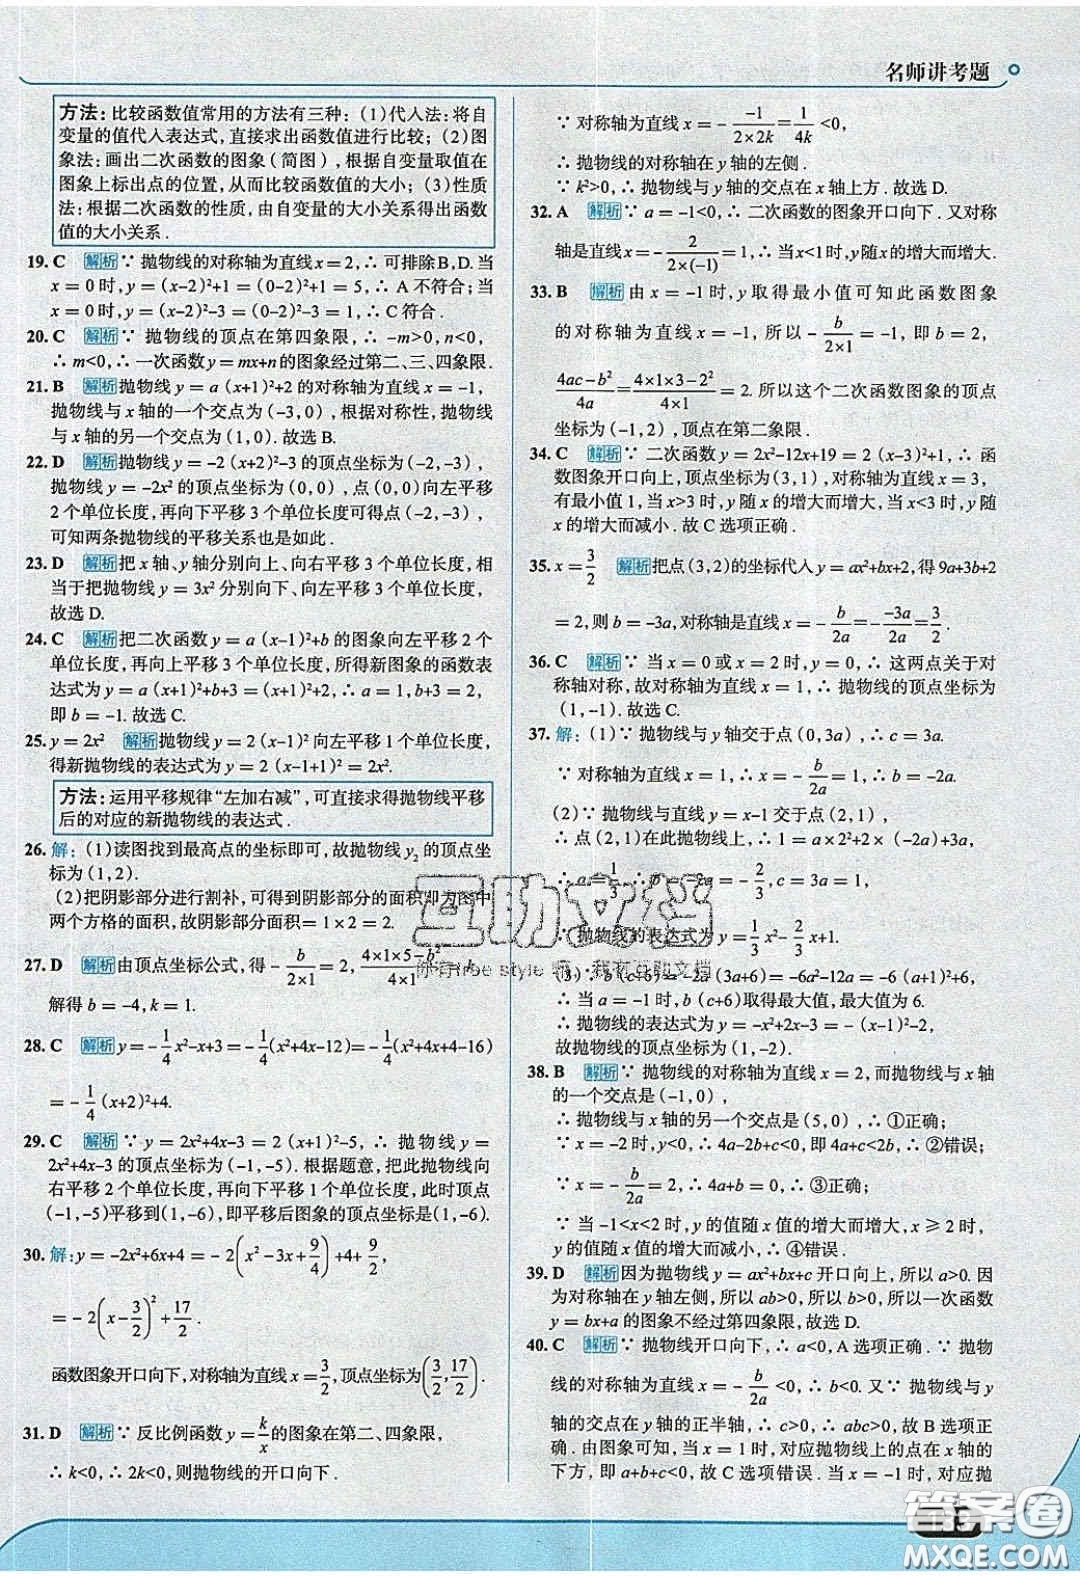 名师讲考题
方法:比较函数值常用的方法有三种:(1)代入法:将自
变量的值代入表达式,直接求出函数值进行比较;(2)图
象法:画出二次函数的图象(简图),根据自变量取值在
图象上标出点的位置,从而比较函数值的大小;(3)性质
法:根据二次函数的性质,由自变量的大小关系得出函数
值的大小关系.
19. C 解析 ∵ 抛物线的对称轴为直线x=2,∴ 可排除B,D.当
x=0时,y=(x-2)²+1=(0-2)²+1=5,∴ A不符合;当
x=0时,y=(x-2)²-3=(0-2)²-3=1,∴ C符合.
20. C 解析 ∵ 抛物线的顶点在第四象限,∴ -m>0,n<0,
∴ m<0,∴ 一次函数y=mx+n的图象经过第二、三、四象限.
21. B 解析 抛物线y=a(x+1)²+2的对称轴为直线x=-1,
抛物线与x轴的一个交点为(-3,0),根据对称性,抛物线
与x轴的另一个交点为(1,0).故选B.
22. D 解析 抛物线y=-2(x+2)²-3的顶点坐标为(-2,-3),
抛物线y=-2x²的顶点坐标为(0,0),点(0,0)向左平移
2个单位长度,再向下平移3个单位长度可得点(-2,-3),
可知两条抛物线的平移关系也是如此.
23. D 解析 把x轴、y轴分别向上、向右平移3个单位长度,相
当于把抛物线y=3x²分别向下、向左平移3个单位长度,
故选D.
24. C 解析 把二次函数y=a(x-1)²+b的图象向左平移2个
单位长度,再向上平移3个单位长度,所得新图象的函数表
达式为y=a(x+1)²+b+3=(x+1)²+2,∴ a=1,b+3=2,
即b=-1.故选C.
25. y=2x² 解析 抛物线y=2(x-1)²向左平移1个单位长度,
得新抛物线的表达式为y=2(x-1+1)²=2x².
方法:运用平移规律“左加右减”,可直接求得抛物线平移
后的对应的新抛物线的表达式.
26. 解:(1)读图找到最高点的坐标即可,故抛物线y₂的顶点坐
标为(1,2).
(2)把阴影部分进行割补,可得到阴影部分的面积即为图中
两个方格的面积,故阴影部分面积=1×2=2.
27. D 解析 由顶点坐标公式,得-b/(2×1)=2,(4×1×5-b²)/(4×1)=k,
解得b=-4,k=1.
28. C 解析 y=-1/4x²-x+3=-1/4(x²+4x-12)=-1/4(x²+4x+4-16)
=-1/4(x+2)²+4.
29. C 解析 ∵ y=2x²+4x-3=2(x+1)²-5,∴ 抛物线y=
2x²+4x-3的顶点坐标为(-1,-5).根据题意,把此抛物线向
右平移2个单位长度,再向下平移1个单位长度,此时顶点
(-1,-5)平移到(1,-6),即平移后图象的顶点坐标是(1,-6).
30. 解:y=-2x²+6x+4=-2(x²-3x+9/4)+4+9/2,
=-2(x-3/2)²+17/2.
函数图象开口向下,对称轴为直线x=3/2,顶点坐标为(3/2,17/2).
31. D 解析 ∵ 反比例函数y=k/x的图象在第二、四象限,
∴ k<0,∴ 2k<0,则抛物线的开口向下.
∵ 对称轴为直线x=-(-1)/(2×2k)=1/4k<0,
∴ 抛物线的对称轴在y轴的左侧.
∵ k²>0,∴ 抛物线与y轴的交点在x轴上方.故选D.
32. A 解析 ∵ a=-1<0,∴ 二次函数的图象开口向下.又对称
轴是直线x=-2/(2×(-1))=1,∴ 当x<1时,y随x的增大而增大.
33. B 解析 由x=-1时,y取得最小值可知此函数图象
的对称轴为直线x=-1,所以-b/(2×1)=-1,即b=2,
(4ac-b²)/4a=(4×1×3-2²)/(4×1)=2.所以这个二次函数图象的顶点
坐标为(-1,2),顶点在第二象限.
34. C 解析 ∵ 二次函数y=2x²-12x+19=2(x-3)²+1,∴ 函
数图象开口向上,顶点坐标为(3,1),对称轴为直线x=3,
有最小值1,当x>3时,y随x的增大而增大,当x<3时,y随
x的增大而减小.故C选项正确.
35. x=3/2 解析 把点(3,2)的坐标代入y=ax²+bx+2,得9a+3b+2
=2,则b=-3a,对称轴是直线x=-b/2a=-(-3a)/2a=3/2.
36. C 解析 ∵ 当x=0或x=2时,y=0,∴ 这两点关于对
称轴对称,故对称轴为直线x=1,∴ 抛物线的顶点坐标为
(1,-1).故选C.
37. 解:(1)∵ 抛物线与y轴交于点(0,3a),∴ c=3a.
∵ 对称轴为直线x=1,∴ x=-b/2a=1,∴ b=-2a.
(2)∵ 抛物线与直线y=x-1交于点(2,1),
∴ 点(2,1)在此抛物线上,∴ 1=a×2²+2×(-2a)+3a,
∴ a=1/3,∴ b=-2/3,c=3a=1,
∴ 抛物线的表达式为y=1/3x²-2/3x+1.
(3)∵ b(c+6)=-2a(3a+6)=-6a²-12a=-6(a+1)²+6,
∴ 当a=-1时,b(c+6)取得最大值,最大值为6.
∴ 抛物线的表达式为y=-x²+2x-3=-(x-1)²-2,
故抛物线的顶点坐标为(1,-2).
38. B 解析 ∵ 抛物线的对称轴为直线x=2,而抛物线与x轴
的一个交点是(-1,0),
∴ 抛物线与x轴的另一个交点是(5,0),∴ ①正确;
∵ x=-2时,y<0,∴ 4a-2b+c<0,即4a+c<2b,∴ ②错误;
∵ x=-b/2a=2,∴ 4a+b=0,∴ ③正确;
∵ 当-1<x<2时,y的值随x值的增大而增大,x≥2时,
y的值随x值的增大而减小,∴ ④错误.
39. D 解析 因为抛物线y=ax²+bx+c开口向上,所以a>0.因
为对称轴在y轴左侧,所以ab>0,所以b>0,所以一次函数
y=bx+a的图象不经过第四象限,故选D.
40. C 解析 ∵ 抛物线开口向下,∴ a<0,A选项正确.∵ 抛物
线的对称轴为直线x=-b/2a<0,∴ b<0.又∵ 抛物线与y
轴的交点在y轴的正半轴,∴ c>0,∴ abc>0,故B选项正
确.由图象可知,当x=1时,对应抛物线上的点在x轴的
下方,即a+b+c<0,故C选项错误.当x=-1时,对应抛
互助文档
你有free style 吗,我有互助文档
答案圈
MXQE.COM